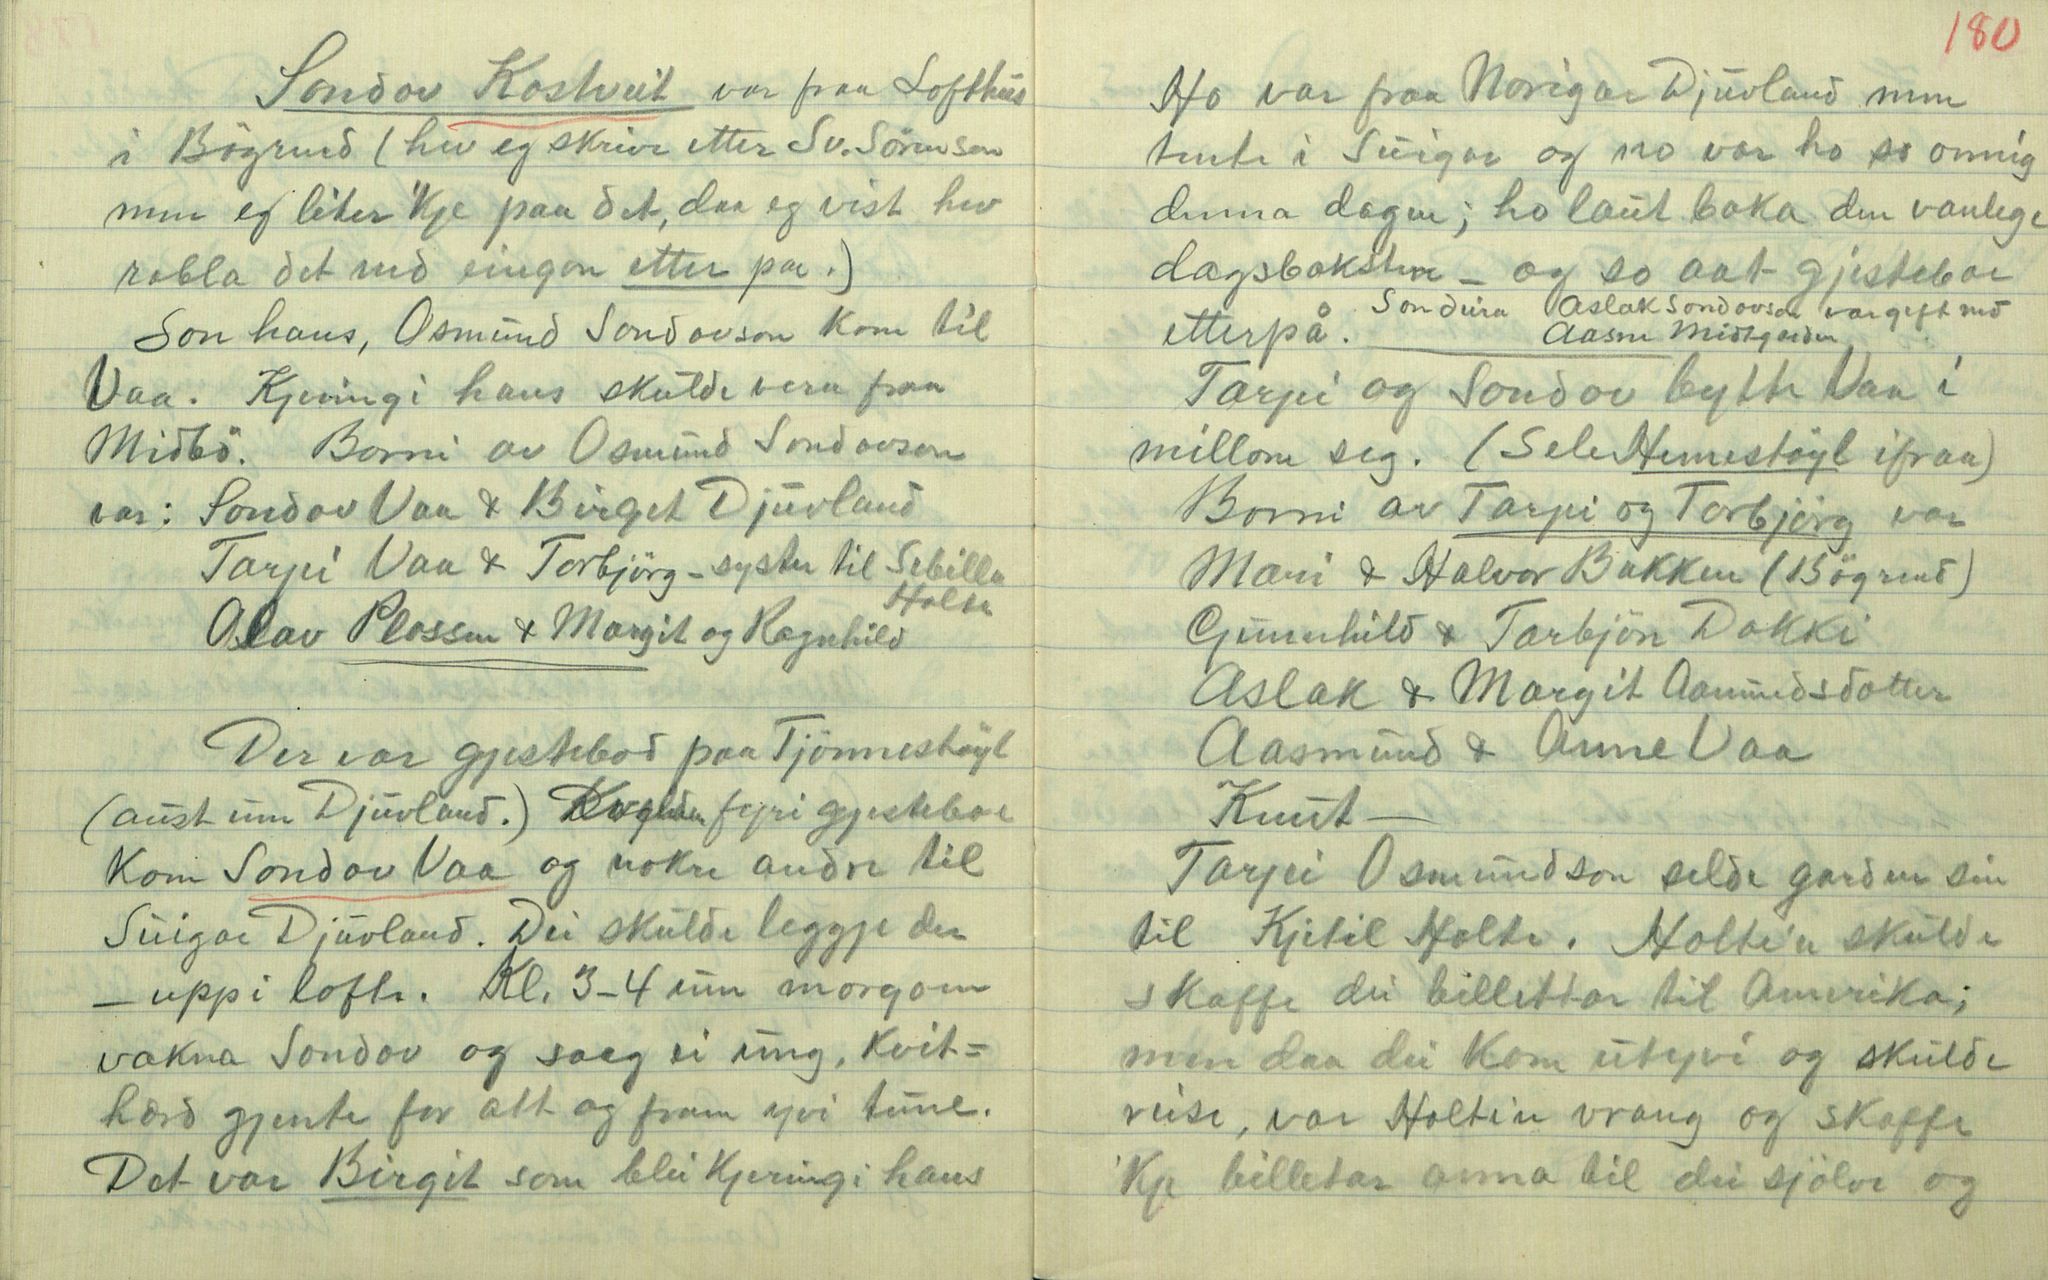 Sondov Kostveit var fraa Lofthus
i Bøgrend (hev eg skrive etter Sv. Sørenson
men eg liter 'kje paa det, daa eg vist hev
rabla det ned eingon etter paa.)
Son hans, Osmund Sondovson kom til
Vaa. Kjeringi hans skulde vera fraa
Midbö. Borni av Osmund Sondovson
var: Sondov Vaa & Birget Djuvland
Tarjei Vaa & Torbjörg - syster til Sebilla
Holte
Olav Plassen & Margit og Ragnhild
Der var gjestebod paa Tjönnestöyl
(aust um Djuvland.) Kvelden fyri gjesteboe
kom Sondov Vaa og nokre andre til
Suigar Djuvland. Dei skulde leggje der
- uppi lofte. Kl. 3-4 um morgoen
vakna Sondov og saag ei ung, kvit=
hærd gjente for att og fram yvi tune.
Det var Birgit som blei kjeringi hans
180
Ho var fraa Norigar Djuvland men
tente i Suigar og no var ho so onnig
denna dagen; ho laut baka den vanlege
dagsbaksten - og so aat gjesteboe
etterpå. Sondura Aslak Sondovson var gift med
Aasne Midtgarden
Tarjei og Sondov bytte Vaa i
millom seg. (Sele Hemestöyl ifraa)
Borni av Tarjei og Torbjörg var
Mari & Halvor Bakken (Bögrend)
Gunnhild & Tarbjön Dokki
Aslak & Margit Aamundsdotter
Aasmund & Anne Vaa
Knut -
Tarjei Osmundson selde garden sin
til Kjetil Holte. Holte'n skulde
skaffe dei billettar til Amerika;
men daa dei kom uteyvi og skulde
reise, var Holti'n vrang og skaffe
'kje billetar anna til dei sjölve og